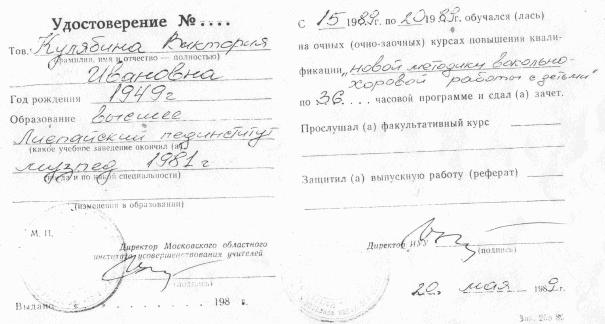 Удостоверение №....
Тов. Кулябина Виктория
(фамилия, имя и отчество — полностью)
Ивановна
Год рождения 1949г
Образование высшее
Лиепайский пединститут
(какое учебное заведение окончил (а)
музпед 1981г
(когда и по какой специальности)
(изменения в образовании)
М. П.
Директор Московского областного
института усовершенствования учителей
(подпись)
Выдано 198 г.
С 15 1989г. по 20 1989г. обучался (лась)
на очных (очно-заочных) курсах повышения квали-
фикации „новой методики вокально-
хоровой работы с детьми"
по 36.... часовой программе и сдал (а) зачет.
Прослушал (а) факультативный курс
Защитил (а) выпускную работу (реферат)
Директор ИУУ
(подпись)
20 мая 1989г.
Зак.